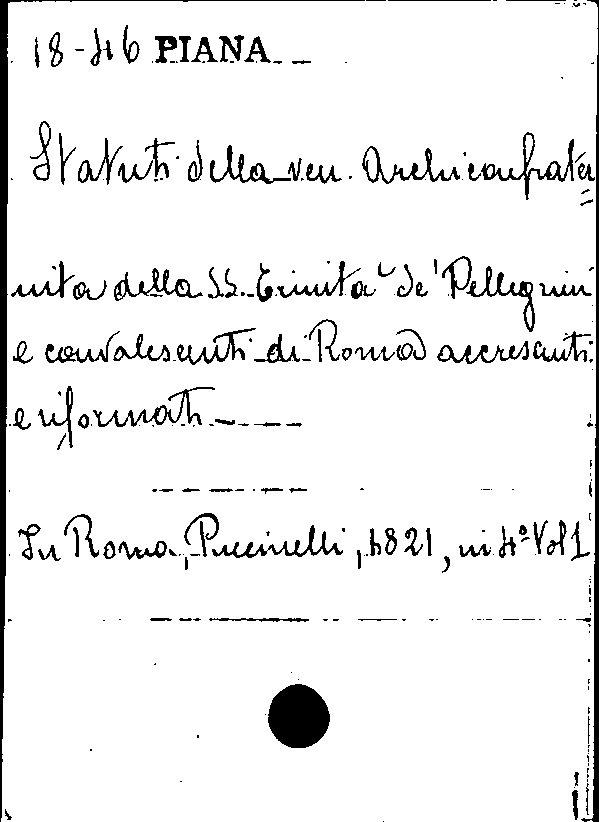 18-46 PIANA
Statuti della ven. Archiconfrater=
nita della SS. Trinita de' Pellegrini
e convalescenti di Roma accrescenti
e riformati
In Roma, Puccinelli, 1821, in 4º Vol 1